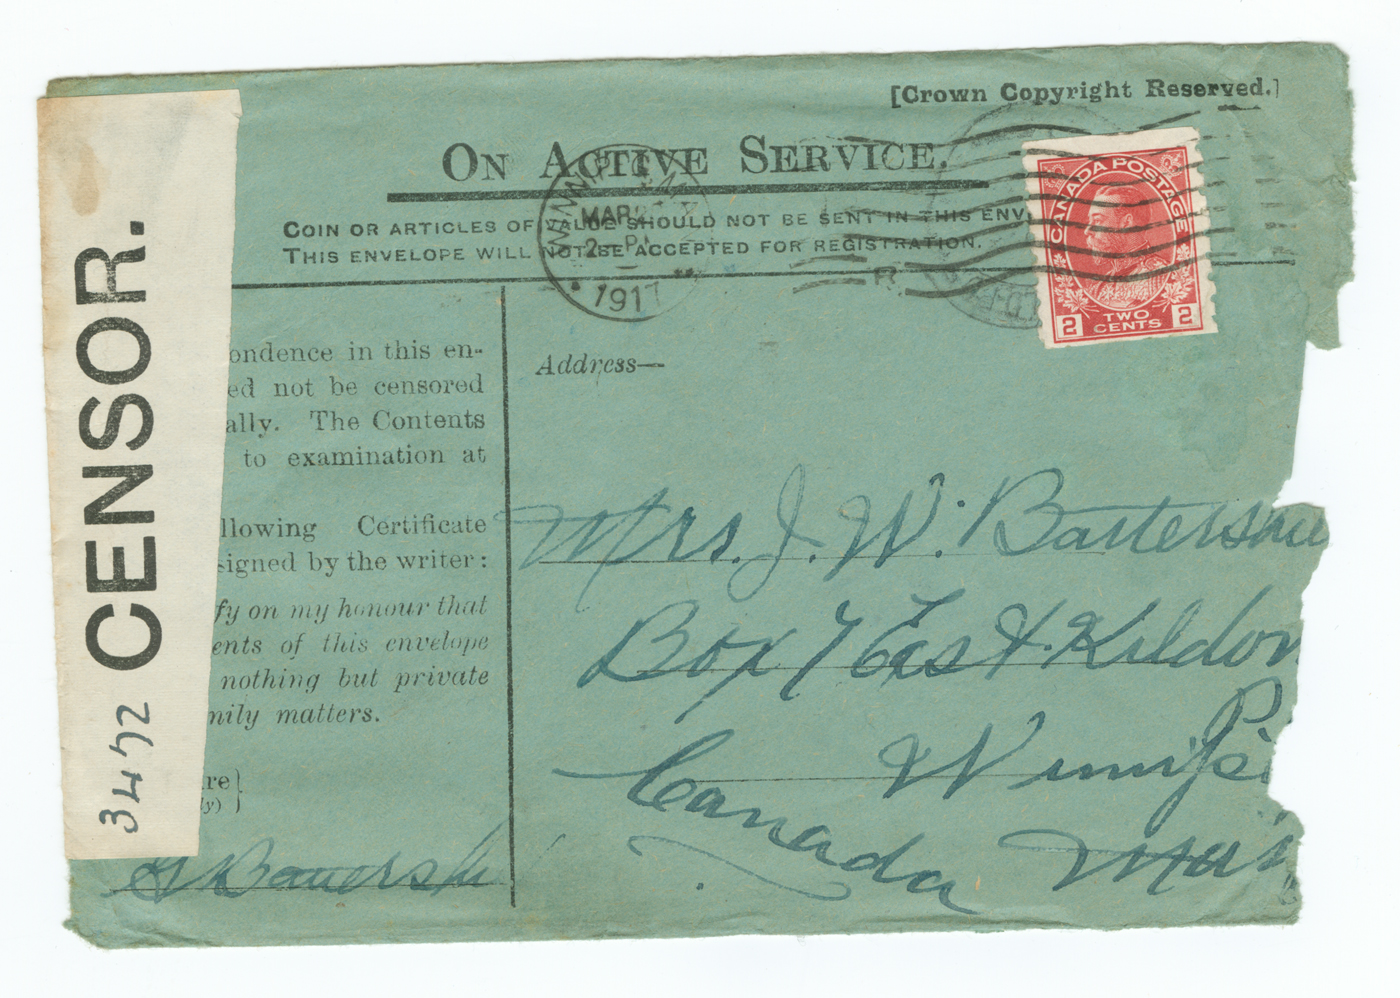 [Crown Copyright Reserved.]
ON ACTIVE SERVICE.
COIN OR ARTICLES OF VALUE SHOULD NOT BE SENT IN THIS ENV
THIS ENVELOPE WILL NOT BE ACCEPTED FOR REGISTRATION.
MAR
2 PM
1917
R
CANADA POSTAGE
2 TWO CENTS 2
CENSOR.
3472
ondence in this en-
ed not be censored
ally. The Contents
to examination at
llowing Certificate
signed by the writer:
fy on my honour that
ents of this envelope
nothing but private
mily matters.
re}
ly)
Address—
Mrs. J. W. Battershi
Box 7 East Kildon
Winnipe
Canada